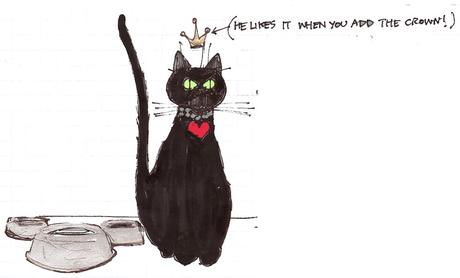 (HE LIKES IT WHEN YOU ADD THE CROWN!)